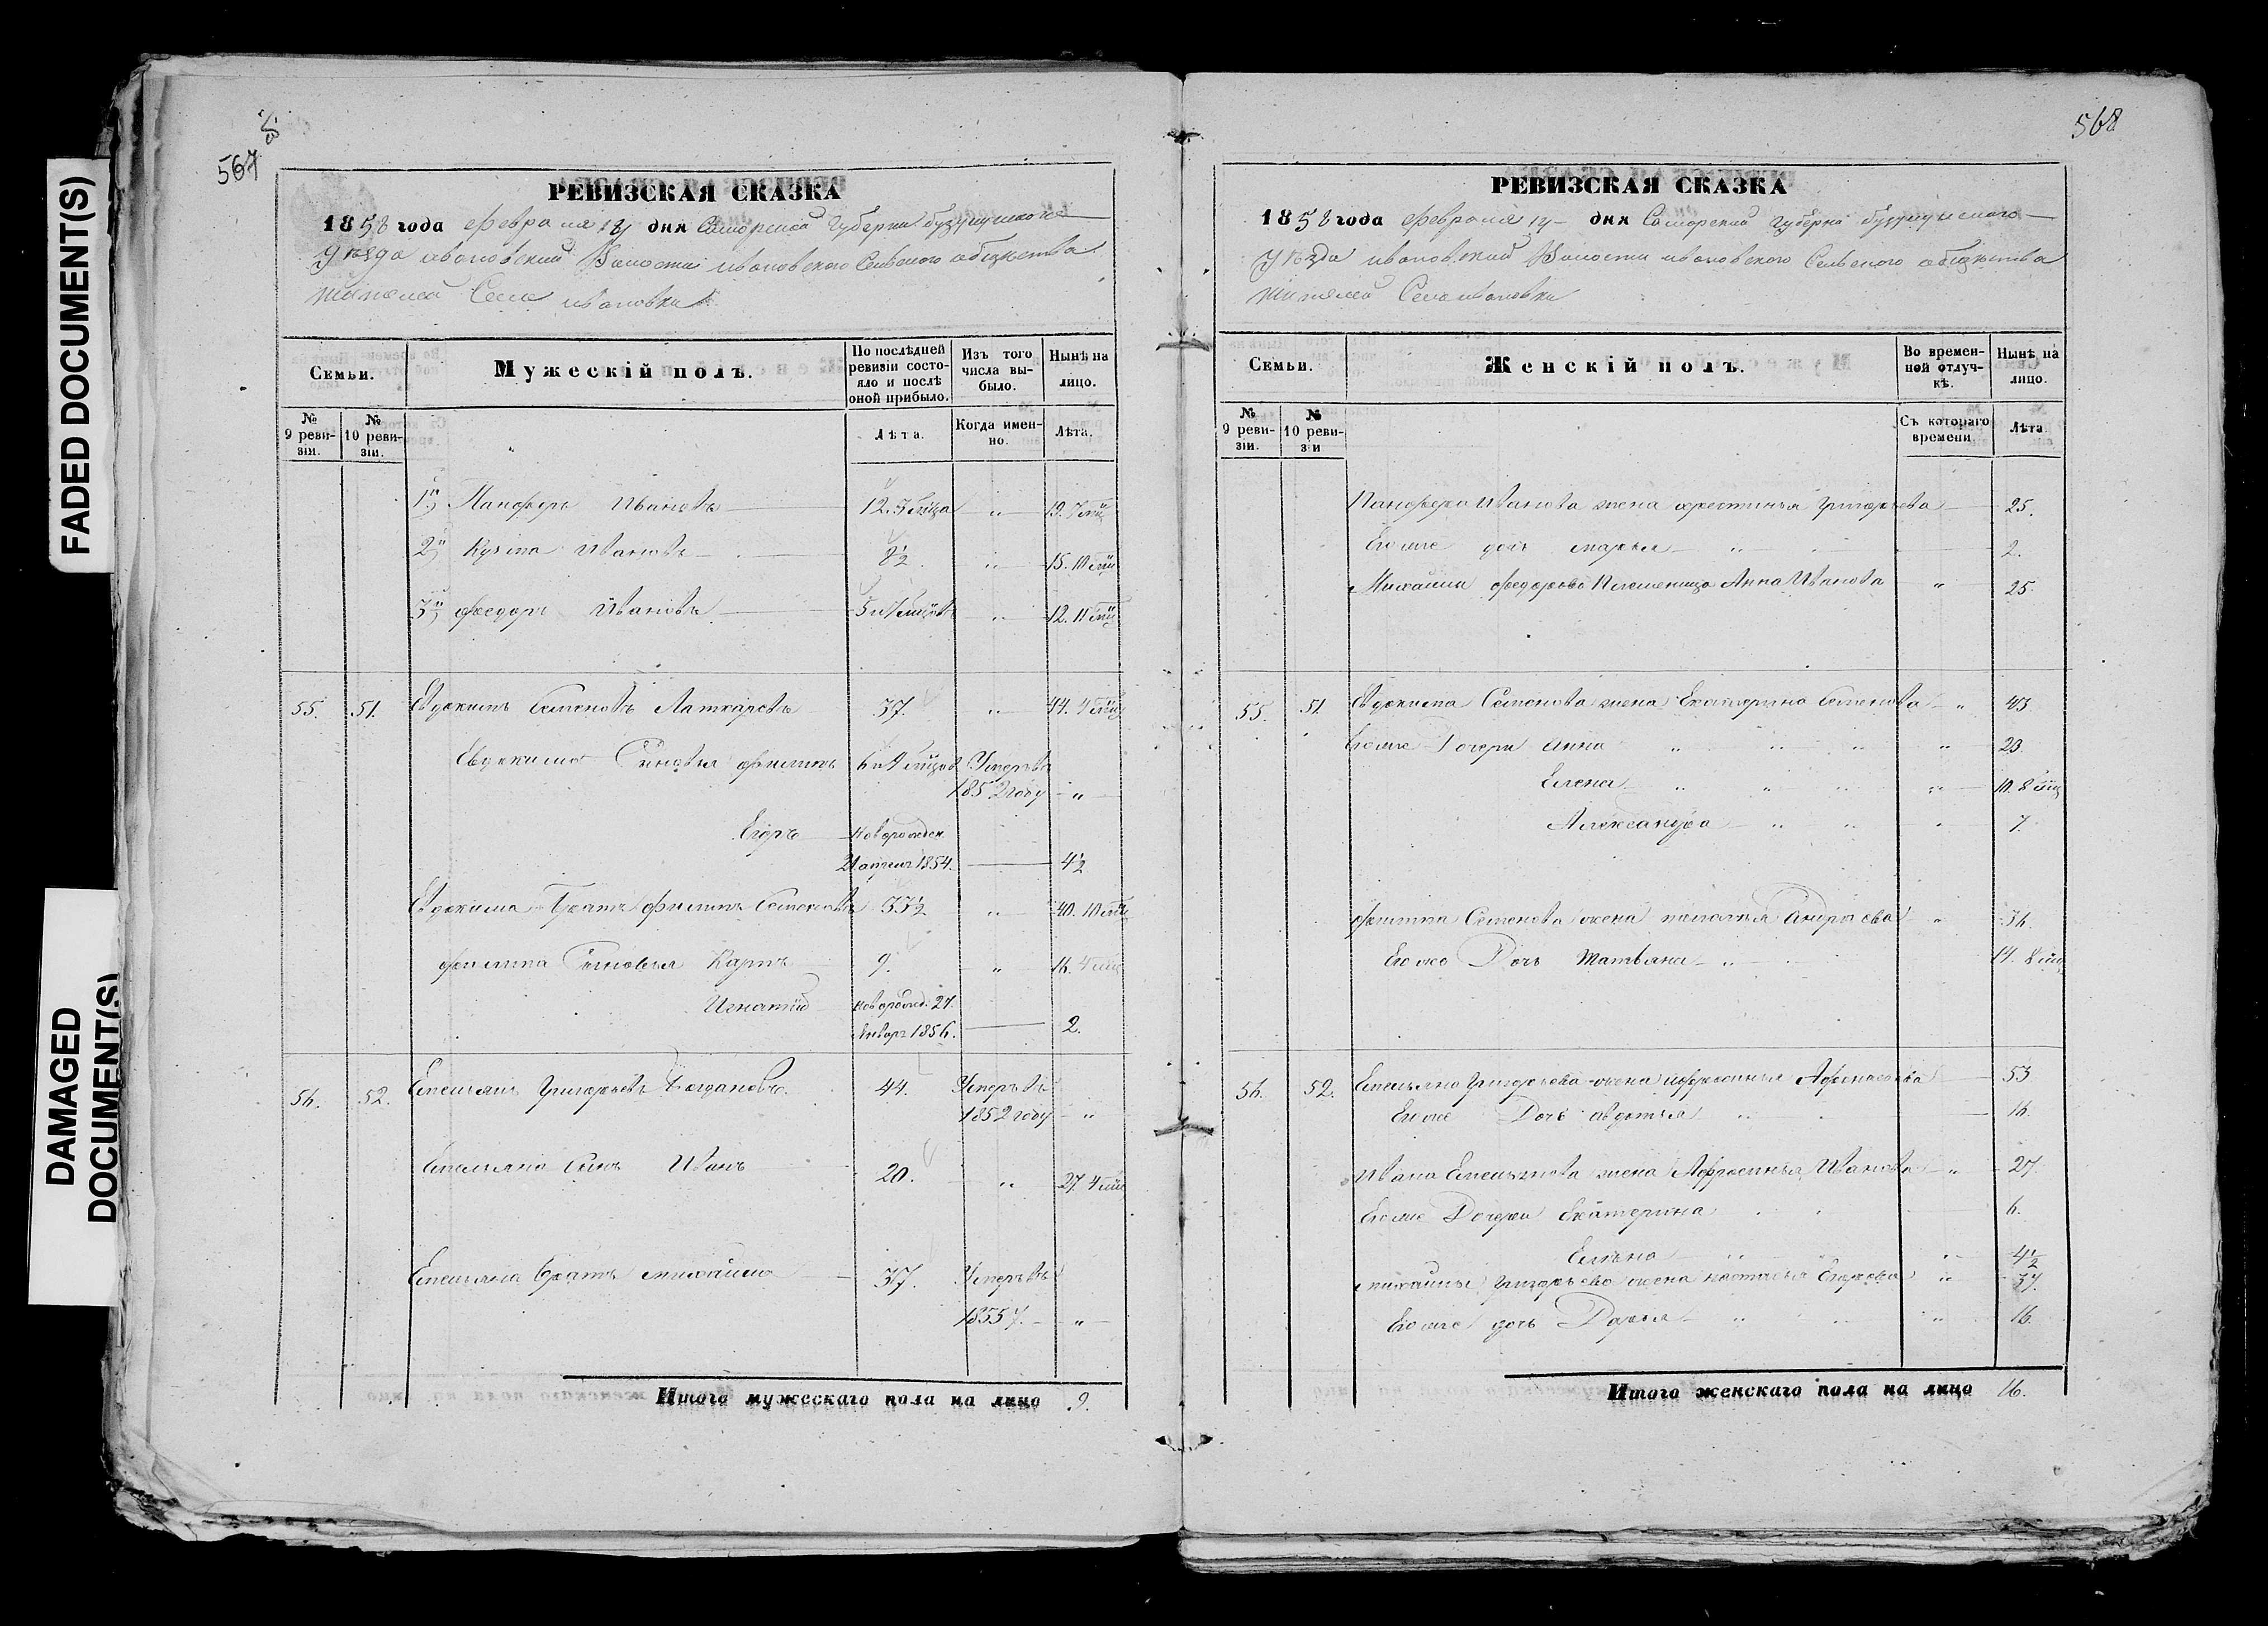 FADED DOCUMENT(S)
DAMAGED
DOCUMENT(S)
567
РЕВИЗСКАЯ СКАЗКА
1858 года февраля дня Самарской Губернии бузулукского
уезда ивановской Волости ивановского Сельского общества
жителей Села ивановки
Семьи.
Мужескій полъ.
По послѣдней ревизіи состояло и послѣ оной прибыло.
Изъ того числа выбыло.
Нынѣ на лицо.
№ 9 ревизіи.
№ 10 ревизіи.
Лѣта.
Когда именно.
Лѣта.
1й Панферъ Ивановъ 12. „ 19.
2й Кузма Ивановъ 8½ „ 15. 10 мц
3й федоръ Ивановъ 5 и 7 „ 12. 11 мц
55. 51. Евдокимъ Семеновъ Латкаревъ 37. „ 44. 4 мц
Евдокима Сыновья филипъ Умеръ въ
1852 году „
Егоръ новорожден
21 апреля 1854. 4½
Евдокима Братъ филипъ Семеновъ 33½ „ 40. 10 мц
филипа Сыновья Карпъ 9. „ 16. 4 мц
Игнатий новорожд. 27.
Январ 1856. 2.
56. 52. Емельянъ Григорьевъ Богдановъ. 44. Умеръ въ
1852 году „
Емельяна Сынъ Иванъ 20. „ 27. 4 мц
Емельяна братъ михайло 37. Умеръ въ
1855 г. „
Итого мужескаго пола на лицо 9.
568
РЕВИЗСКАЯ СКАЗКА
1858 года февраля дня Самарской Губернии бузулукского
уезда ивановской Волости ивановского Сельского общества
жителей Села ивановки
Семьи.
Женскій полъ.
Во временной отлучкѣ.
Нынѣ на лицо.
№ 9 ревизіи.
№ 10 ревизіи
Съ котораго времени
Лѣта.
Панфера Иванова жена Григорьева 25.
Его же дочь марья „ 2.
Михайлы федорова Племеница Анна Иванова „ 25.
55. 51. Евдокима Семенова жена Екатерина Семенова „ 43
Его же Дочери Анна „ „ „ „ 20.
Елена „ „ „ „ 10. 8 мц
Александра „ „ „ 7.
филипа Семенова жена палагея Андреева „ 36.
Его же Дочь Татьяна „ 14. 8 мц
56. 52. Емельяна Григорьева жена Афонасьева 53
Его же Дочь авдотья „ 16.
Ивана Емельянова жена Афросинья Иванова „ 27
Его же Дочери Екатерина 6.
Елена „ „ 4½
михайлы Григорьева жена настасья Егорова „ 37.
Его же дочь Дарья „ „ „ 16.
Итого женскаго пола на лицо 16.